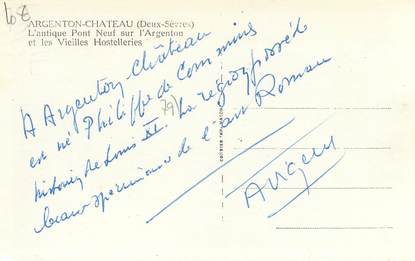 10€
ARGENTON-CHATEAU (Deux-Sèvres)
L'antique Pont Neuf sur l'Argenton
et les Vieilles Hostelleries
A Argenton Château
est né Philippe de Commines
historien de Louis XI. La région possède
beaux spécimens de l'art Roman
79